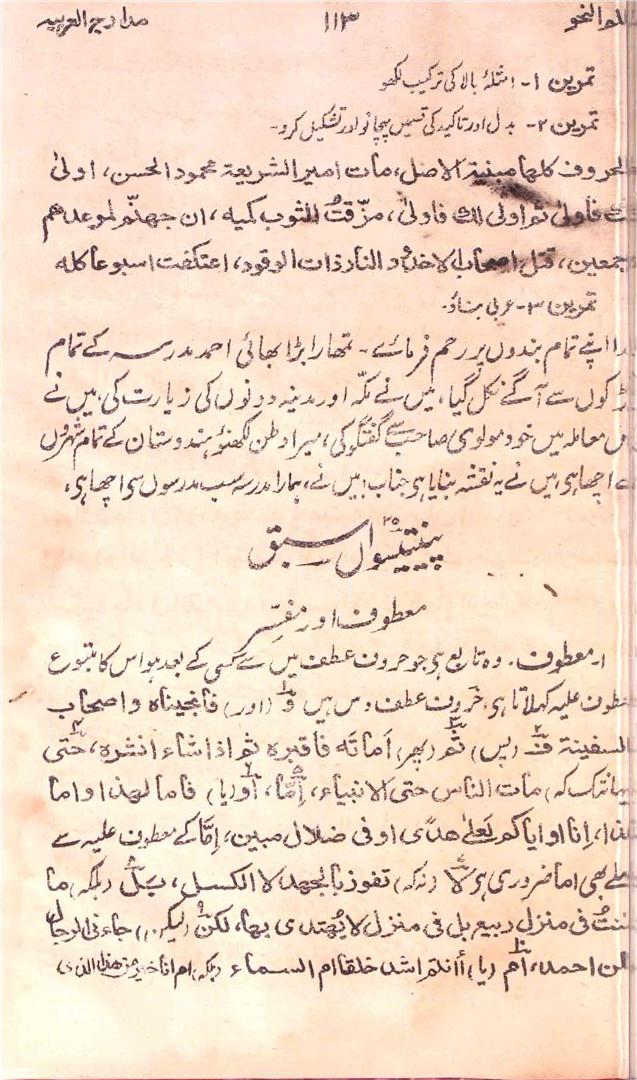 والنحو ۱۱۳ مدارج العربیه
تمرین ۱- امثلۂ بالا کی ترکیب لکھو
تمرین ۲- بدل اور تاکید کی قسمیں پہچانو اور تشکیل کرو۔
الحروف کلها مبنیة الاصل، مات امیر الشریعة محمود الحسن، اولیٰ
فاولیٰ ثم اولیٰ لك فاولیٰ، مزّقتُ الثوب کمیه، ان جهنّم لموعدهم
جمعین، قتل اصحاب الاخدود النار ذات الوقود، اعتکفت اسبوعا کله
تمرین ۳- عربی بناؤ۔
اپنے تمام بندوں پر رحم فرمائے۔ تمھارا بڑا بھائی احمد مدرسہ کے تمام
لڑکوں سے آگے نکل گیا، میں نے مکّہ اور مدینہ دونوں کی زیارت کی، میں نے
معاملہ میں خود مولوی صاحب سے گفتگو کی، میرا وطن لکھنؤ ہندوستان کے تمام شہروں
اچھا ہی، میں نے یہ نقشہ بنایا ہی جناب! میں نے، ہمارا مدرسہ سب مدرسوں سی اچھا ہی،
پینتیسواں ۳۵ سبق
معطوف اور مفسّر
۱۔ معطوف۔ وہ تابع ہی جو حروف عطف میں سے کسی کے بعد ہو اس کا متبوع
معطوف علیہ کہلاتا ہی، حروف عطف دس ہیں وَ (اور) فانجیناه واصحاب
السفینة فَ (پس) ثُمَّ (پھر) اَماتَه فاقبره ثم اذا شاء انشره، حتّٰی
یہانتک کہ) مات الناس حتی الانبیاء، اِمّا، اَو (یا) فاما لهذا واما
لهذا، اِنا او ایاکم لَعلیٰ هدًی او فی ضلال مبین، اِمّا کے معطوف علیہ سے
پہلے بھی اما ضروری ہی لا (نہ کہ) تفوز بالجهد لا الکسل، بَل (بلکہ) ما
فی منزل ربیع بل فی منزل لا یُهتدی بها، لکن (لیکن) جاءنی الرجال
لکن احمد، اَم (یا) أأنتم اشد خلقا ام السماء (بلکہ) ام انا خیر من هذا الذی